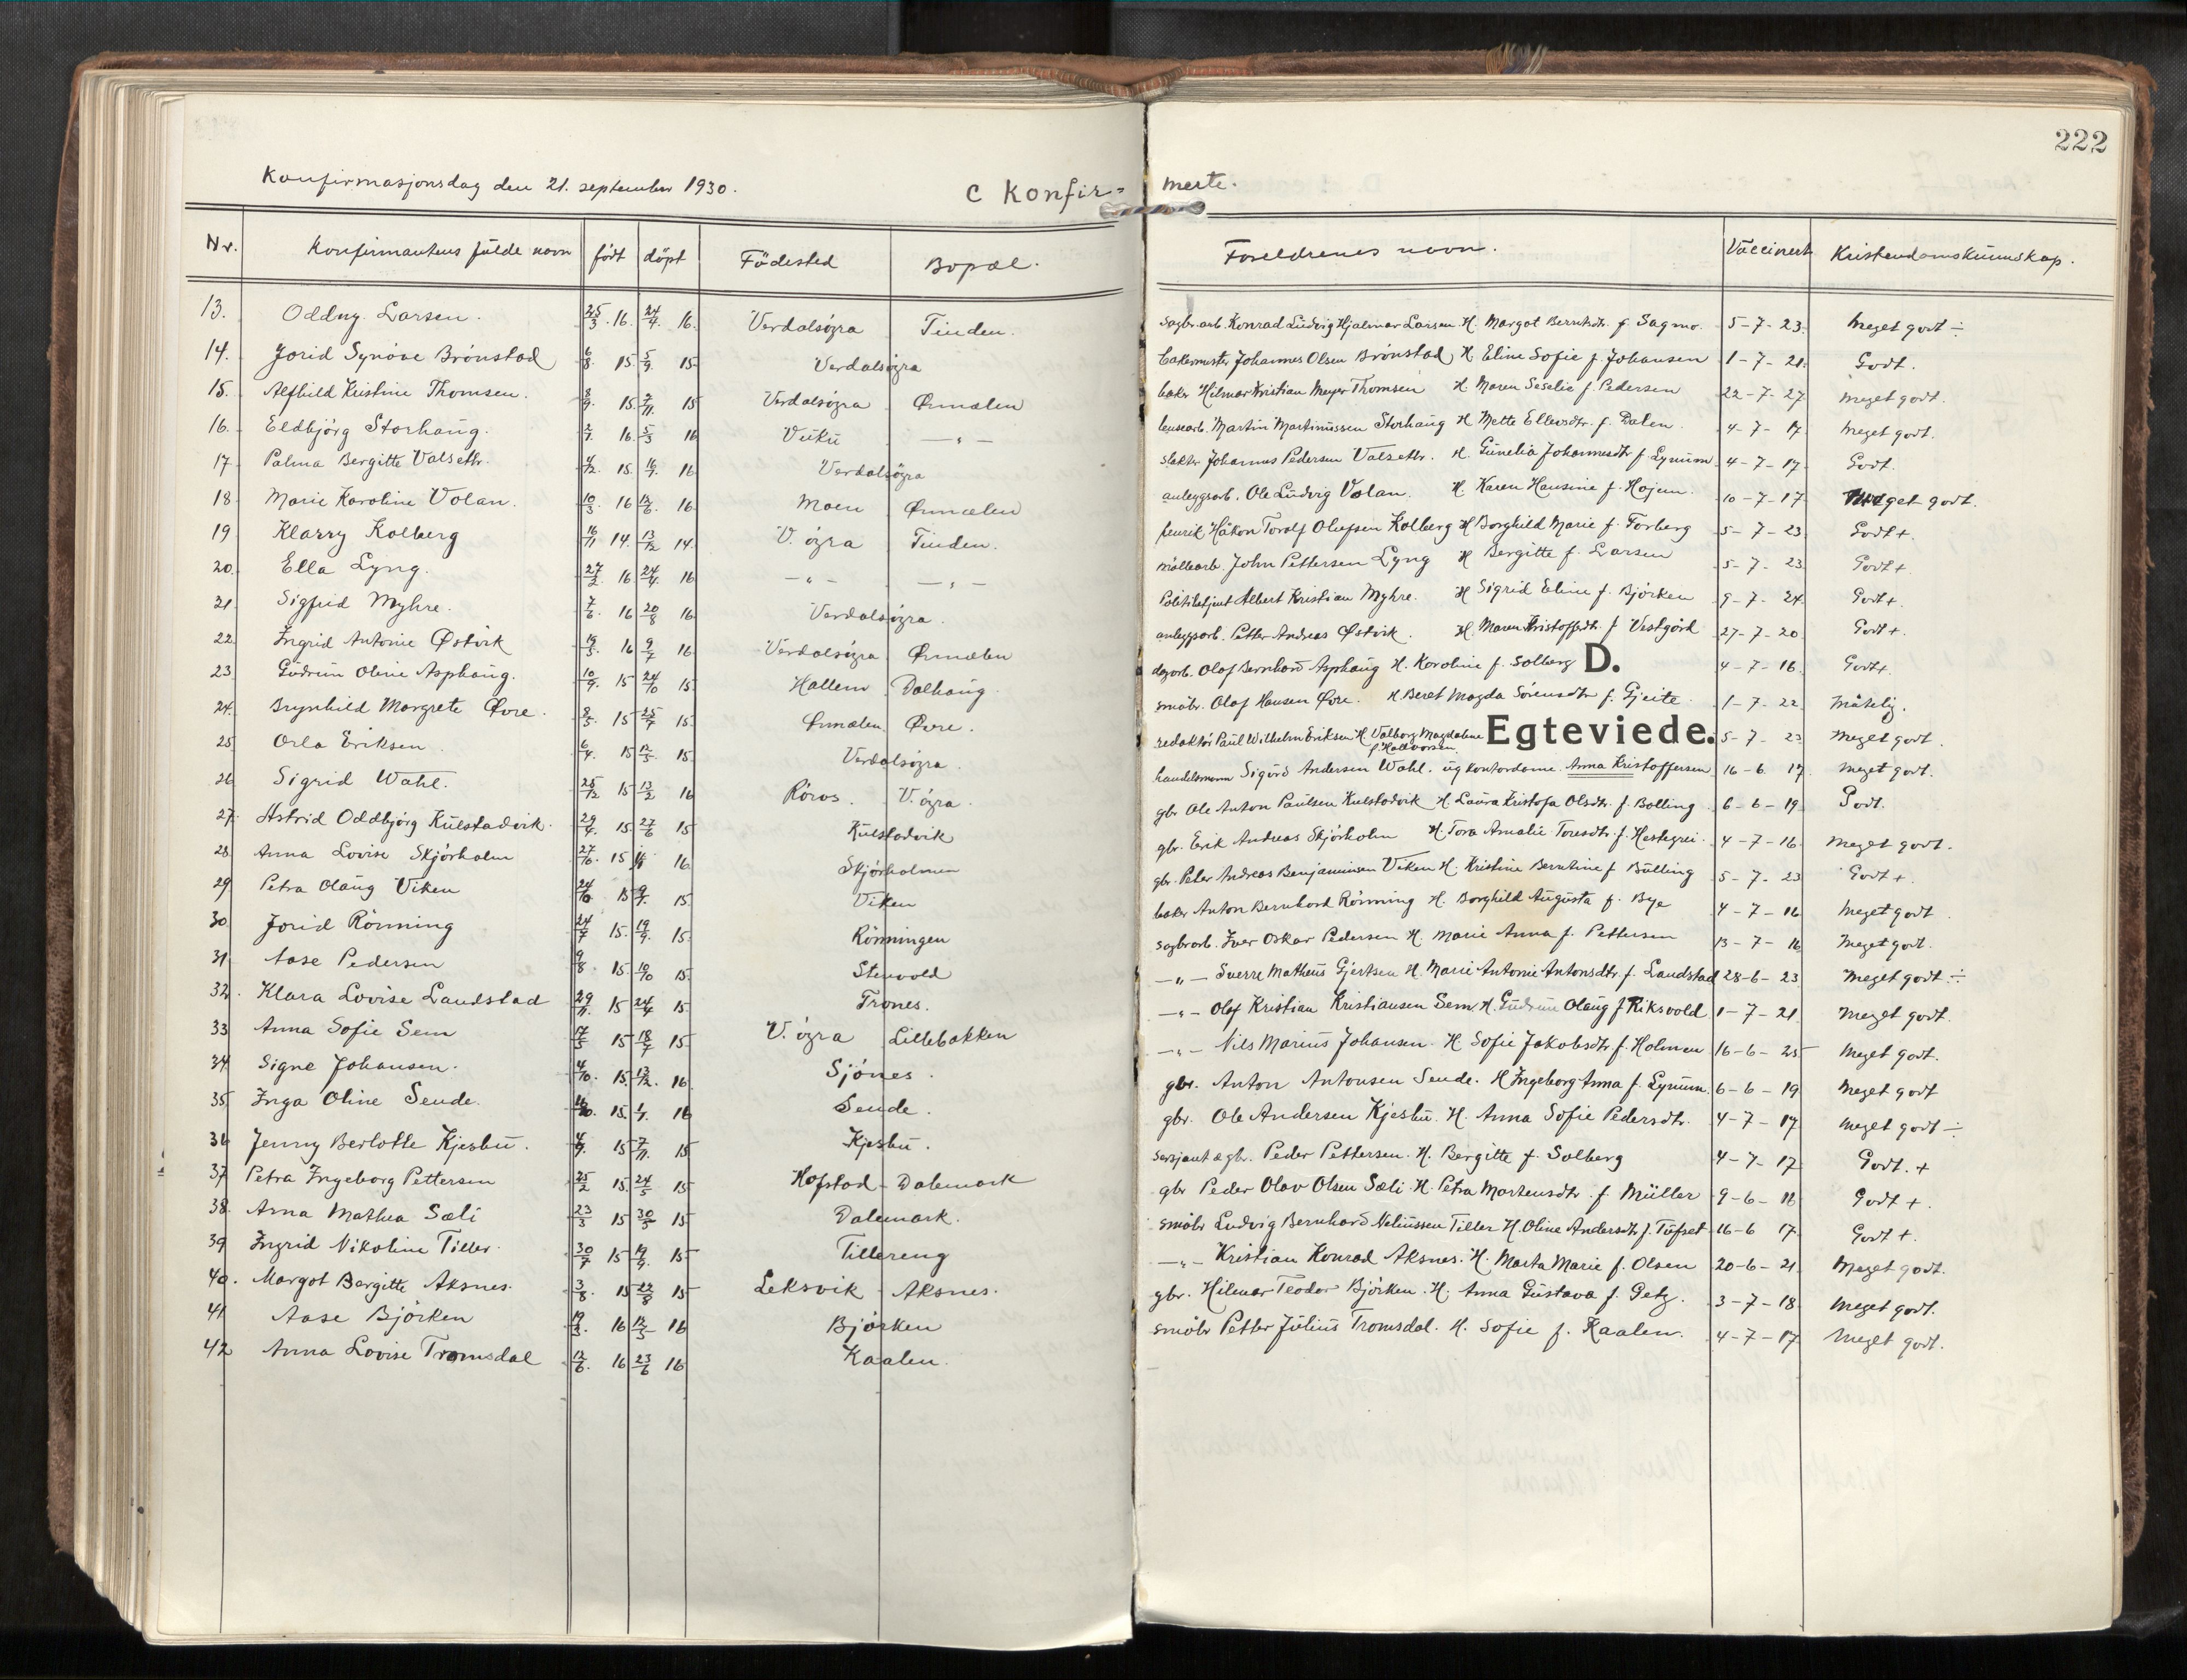 222
Konfirmasjonsdag den 21. september 1930. C Konfir= merte.
Nr. Konfirmantens fulde navn født döpt Födested Bopæl. Foreldrenes navn. Vaccinert Kristendomskunnskap.
13. Oddny Larsen. 25/3. 16. 24/4. 16. Verdalsöra Tinden. Sagbr.arb. Konrad Ludvig Hjalmar Larsen H. Margot Berntsdr. f. Sagmo. 5-7-23. Meget godt ÷
14. Jorid Synöve Brönstad 6/8. 15. 5/9. 15. Verdalsöra bakermester Johannes Olsen Brönstad H. Eline Sofie f. Johansen 1-7-21. Godt.
15. Alfhild Kristine Thomsen. 8/9. 15. 7/11. 15 Verdalsöra Ørmælen baker Hilmar Kristian Meyer Thomsen H. Maren Seselie f. Pedersen 22-7-27 Meget godt.
16. Eldbjörg Storhaug. 16. 5/3 16 Vuku —„— Martin Martinussen Storhaug H. Mette Ellevsdtr. f. Dalen. 4-7-17. Meget godt.
17 Palma Bergitte Valsetbr. 4/12. 15. 16 Verdalsöra slakter Johannes Pedersen Valsetbr. H. Gunelia Johannesdtr f. Lynum 4-7-17 Godt.
18 Marie Karoline Volan. 10/3. 16 12/6. 16. Moen Ørmælen anleggsarb. Ole Ludvig Volan. H. Karen Hansine f. Hojem. 10-7-17. Meget godt.
19 Klarry Kolberg 16/11 14. 13/12 14. V. öra Tinden. Håkon Torolf Olufsen Kolberg H Borghild Marie f. Forberg 5-7-23. Godt +.
20. Ella Lyng. 27/2. 16 24/4. 16 —„— —„— möllearb. John Pettersen Lyng H Bergitte f. Larsen 5-7-23 Godt +
21 Sigfrid Myhre. 7/6. 16 20/8 16 Verdalsöra. Politibetjent Albert Kristian Myhre. H Sigrid Eline f. Björken 9-7-24. Godt +.
22. Ingrid Antonie Østvik 19/5. 16 9/7 16 Verdalsöra Ørmælen anleggsarb. Petter Andreas Østvik. H. Maren Kristoffersdtr. f. Vestgård 27-7-20 Godt +.
23. Gudrun Oline Asphaug. 10/9. 15 24/10 15. Hallem Dalhaug. dagarb. Olaf Bernhard Asphaug H. Karoline f. Solberg D. 4-7-16. Godt +
24. Brynhild Margrete Øvre. 8/5. 15 25/7 15. Ørmælen Øvre. småbr. Olaf Hansen Øvre. H. Beret Magda Sörensdtr f. Gjeite. 1-7-22. Måtelig.
25 Orla Eriksen. 6/4. 15 15. Verdalsöra. redaktör Paul Wilhelm Eriksen H Valborg Magdalene f. Hallvorsen. Egteviede. 5-7-23 Meget godt.
26 Sigrid Wahl. 25/12 15 13/2 16 Röros. V. öra. handelsmann Sigurd Andersen Wahl. ug kontordame. Anna Kristoffersen 16-6. 17. Meget godt.
27. Astrid Oddbjörg Kulstadvik. 29/4. 15. 27/6 15 Kulstadvik gbr. Ole Anton Paulsen Kulstadvik H Laura Kristofa Olsdtr. f. Bolling 6-6-19 Godt.
28. Anna Lovise Skjörholm 27/10. 15 16 Skjörholmen gbr. Erik Andreas Skjörholm H. Tora Amalie Toresdtr. f. Hestegrei. 4-7-16. Meget godt.
29 Petra Olaug Viken 24/10 15 15. Viken gbr. Peter Andreas Benjaminsen Viken H. Kristine Berntine f Bulling 5-7-23 Godt +.
30. Jorid Rönning 24/7 15. 19/9. 15. Rönningen baker Anton Bernhard Rönning H. Borghild Augusta f. Bye 4-7-16 Meget godt.
31 Aase Pedersen 9/8 15. 10/10 15. Stenvold Sagbr.arb. Iver Oskar Pedersen H. Marie Anna f. Pettersen 13-7-16 Meget godt.
32. Klara Lovise Landstad 29/11. 15 24/4 15. Trones. —„— Sverre Matheus Gjertsen H. Marie Antonie Antonsdtr. f. Landstad 28-6-23 Meget godt ÷
33 Anna Sofie Sem 17/5 15 18/7 15 V. öra Lillebakken —„— Olaf Kristian Kristiansen Sem H. Gudrun Olaug f Riksvold 1-7-21. Meget godt.
34 Signe Johansen. 4/10. 15. 13/12. 16. Sjönes. —„— Nils Marius Johansen. H Sofie Jakobsdtr. f. Holmen 16-6-25 Meget godt.
35 Inga Oline Sende. 15. 1/1. 16 Sende. gbr. Anton Antonsen Sende. H Ingeborg Anna f. Lynum 6-6-19 Meget godt
36 Jenny Berlotte Kjesbu. 15 7/11. 15 Kjesbu. gbr. Ole Andersen Kjesbu. H. Anna Sofie Pedersdtr. 4-7-17 Meget godt ÷
37 Petra Ingeborg Pettersen 25/2 15. 24/5 15 Hofstad - Dalemark Sersjant & gbr. Peder Pettersen. H. Bergitte f. Solberg 4-7-17 Godt. +
38. Arna Mathea Sæli 23/3 15 30/5 15 Dalemark. gbr Peder Olav Olsen Sæli. H. Petra Mortensdtr. f Müller 9-6-16 Godt +.
39 Ingrid Nikoline Tiller. 30/7 15 19/9. 15 Tillereng småbr Ludvig Bernhard Neliussen Tiller H Oline Andersdtr f. Tufset 16-6 17. Godt +.
40. Margot Bergitte Aksnes. 3/8. 15 22/8 15 Leksvik Aksnes. —„— Kristian Konrad Aksnes. H. Marta Marie f. Olsen 20-6-21. Meget godt.
41 Aase Björken 19/3. 16 12/3 16 Björken gbr. Hilmar Teodor Björken. H. Anna Gustava f. Getz. 3-7-18 Meget godt.
42 Anna Lovise Tromsdal 12/6. 16 23/6 16 Kaalen. småbr Petter Julius Tromsdal. H. Sofie f. Kaalen. 4-7-17 Meget godt.